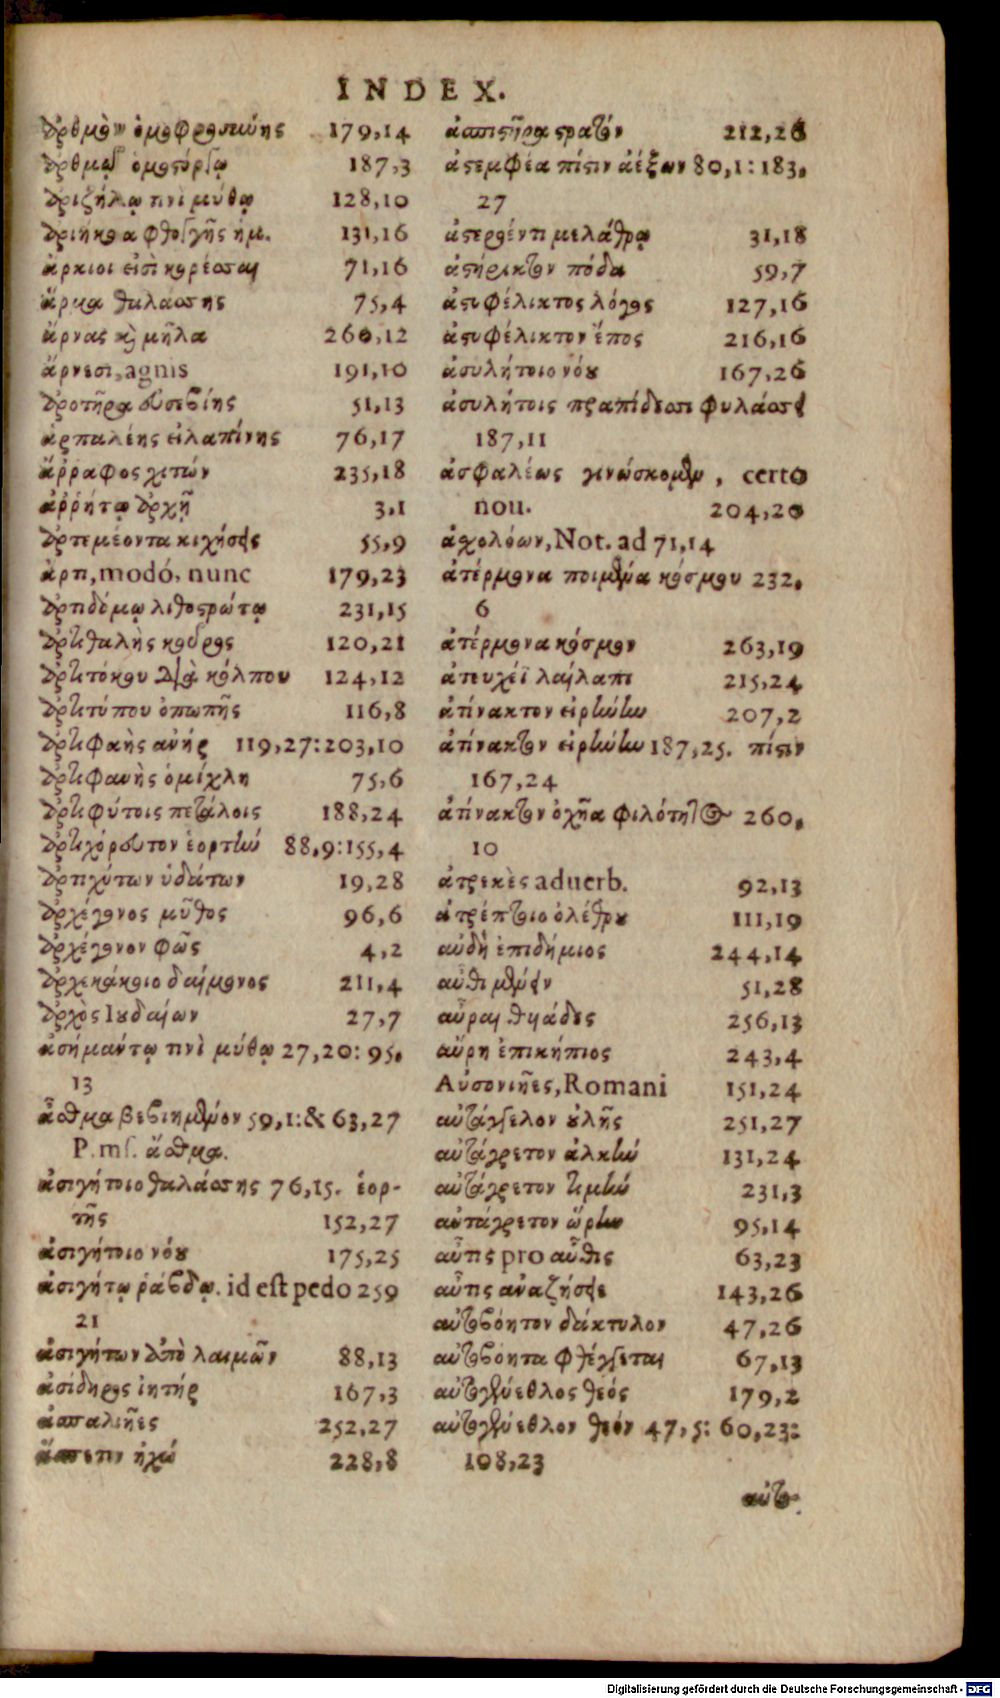 INDEX.
ἀρθμὸν ὁμοφροσύνης 179,14
ἀρθμῷ ὁμοτόργῳ 187,3
ἀριζήλῳ τινὶ μύθῳ 128,10
ἀριήκοα φθογγῆς ἡμ. 131,16
ἄρκιοι εἰσὶ κορέσσαι 71,16
ἅρμα θαλάσσης 75,4
ἄρνας καὶ μῆλα 260,12
ἄρνεσι, agnis 191,10
ἀροτῆρα εὐσεβίης 51,13
ἁρπαλέης εἰλαπίνης 76,17
ἄρραφος χιτών 235,18
ἀρρήτῳ ἀρχῇ 3,1
ἀρτεμέοντα κιχήσεις 55,9
ἄρτι, modó, nunc 179,23
ἀρτιδόμῳ λιθοστρώτῳ 231,15
ἀρτιθαλὴς 120,21
ἀρτιτόκου διὰ κόλπου 124,12
ἀρτιτύπου ὀπωπῆς 116,8
ἀρτιφαὴς ἀνήρ 119,27: 203,10
ἀρτιφανὴς ὁμίχλη 75,6
ἀρτιφύτοις πετάλοις 188,24
ἀρτιχόρευτον ἑορτὴν 88,9: 155,4
ἀρτιχύτων ὑδάτων 19,28
ἀρχέγονος μῦθος 96,6
ἀρχέγονον φῶς 4,2
ἀρχεκάκοιο δαίμονος 211,4
ἀρχὸς Ιουδαίων 27,7
ἀσημάντῳ τινὶ μύθῳ 27,20: 95,
13
ἆσθμα βεβιημένον 59,1: & 63,27
P. mſ. ἄσθμα.
ἀσιγήτοιο θαλάσσης 76,15. ἑορ-
τῆς 152,27
ἀσιγήτοιο νόου 175,25
ἀσιγήτῳ ῥάβδῳ. id eſt pedo 259
21
ἀσιγήτων ἀπὸ λαιμῶν 88,13
ἀσίδηρος ἰητήρ 167,3
ἀσπαλιῆες 252,27
ἄσπετιν ἠχώ 228,8
ἀσπιστῆρα στρατὸν 212,26
ἀστεμφέα πίστιν ἀέξων 80,1: 183,
27
ἀστερόεντι μελάθρῳ 31,18
ἀστήρικτον πόδα 59,7
ἀστυφέλικτος λόγος 127,16
ἀστυφέλικτον ἔπος 216,16
ἀσυλήτοιο νόου 167,26
ἀσυλήτοις πραπίδεσσι φυλάσσει
187,11
ἀσφαλέως γινώσκομεν, certo
nou. 204,20
ἀσχολόων, Not. ad 71,14
ἀτέρμονα ποιμένα κόσμου 232,
6
ἀτέρμονα κόσμον 263,19
ἀτευχέϊ λαίλαπι 215,24
ἀτίνακτον εἰρήνην 207,2
ἀτίνακτον εἰρήνην 187,25. πίστιν
167,24
ἀτίνακτον ὀχῆα φιλότητος 260,
10
ἀτρεκὲς aduerb. 92,13
ἀτρέπτοιο ὀλέθρου 111,19
αὐδὴ ἐπιδήμιος 244,14
αὖθι μένειν 51,28
αὖραι θυιάδες 256,13
αὔρη ἐπικήπιος 243,4
Αὐσονιῆες, Romani 151,24
αὐτάγγελον ὕλης 251,27
αὐτάγρετον ἀλκὴν 131,24
αὐτάγρετον τιμὴν 231,3
αὐτάγρετον ὥρην 95,14
αὖτις pro αὖθις 63,23
αὖτις ἀναζήσεις 143,26
αὐτοβόητον δάκτυλον 47,26
αὐτοβόητα φθέγγεται 67,13
αὐτογένεθλος θεός 179,2
αὐτογένεθλον θεόν 47,5: 60,23:
108,23
αὐτο-
Digitalisierung gefördert durch die Deutsche Forschungsgemeinschaft - DFG